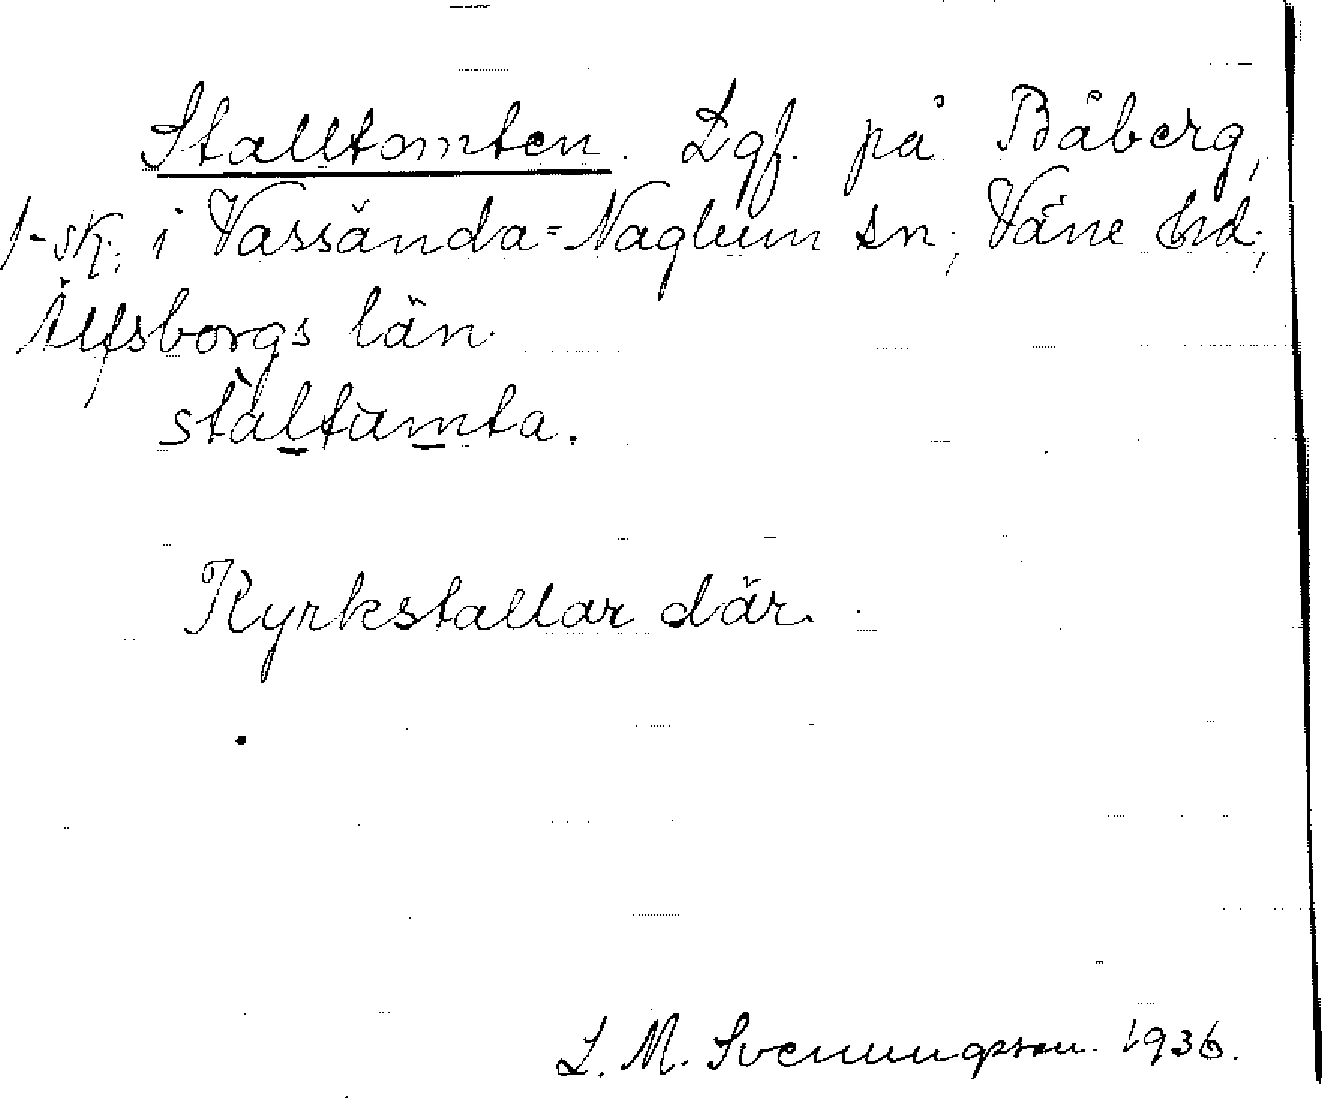 Stalltomten. Lgf. på Båberg,
1-sk. i Vassända=Naglum sn, Väne hd.,
Älfsborgs län.
stàltamta.
Kyrkstallar där.
L. M. Svenungsson. 1936.